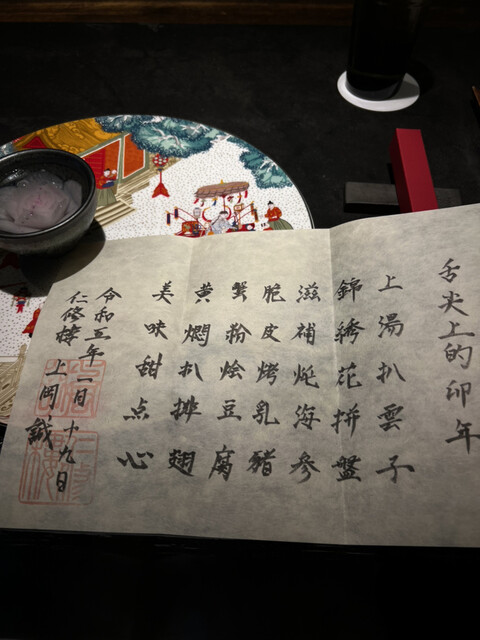 舌尖上的卯年
上湯扒雲子
錦綉花拼盤
滋補炖海参
脆皮烤乳豬
蟹粉烩豆腐
黄燜扒排翅
美味甜点心
令和五年一月十九日
仁修樓 上岡誠